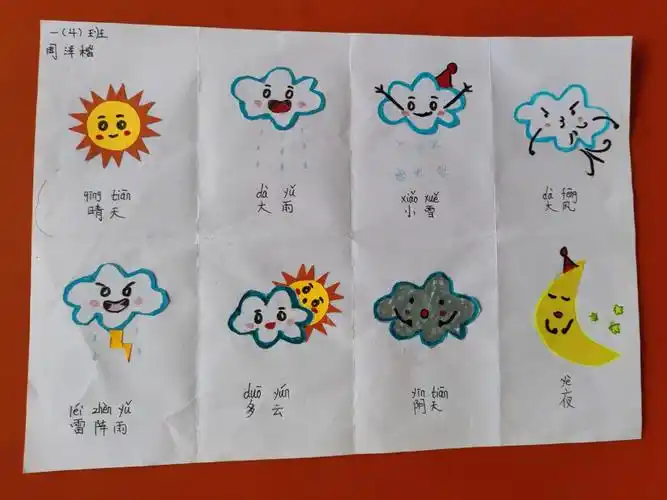 一(4)班
周泽楷
qíng tiān
晴天
dà yǔ
大雨
xiǎo xuě
小雪
dà fēng
大风
léi zhèn yǔ
雷阵雨
duō yún
多云
yīn tiān
阴天
yè
夜